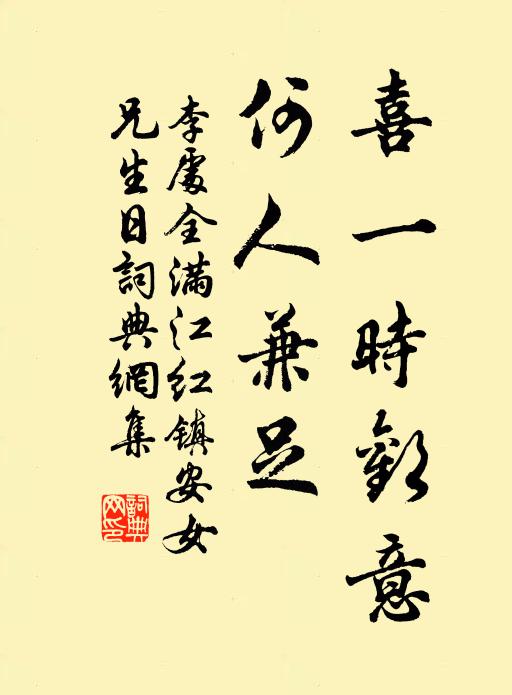 喜一時歡意
何人兼足
李處全滿江紅镇安女
兄生日詞典網集
詞典
网印